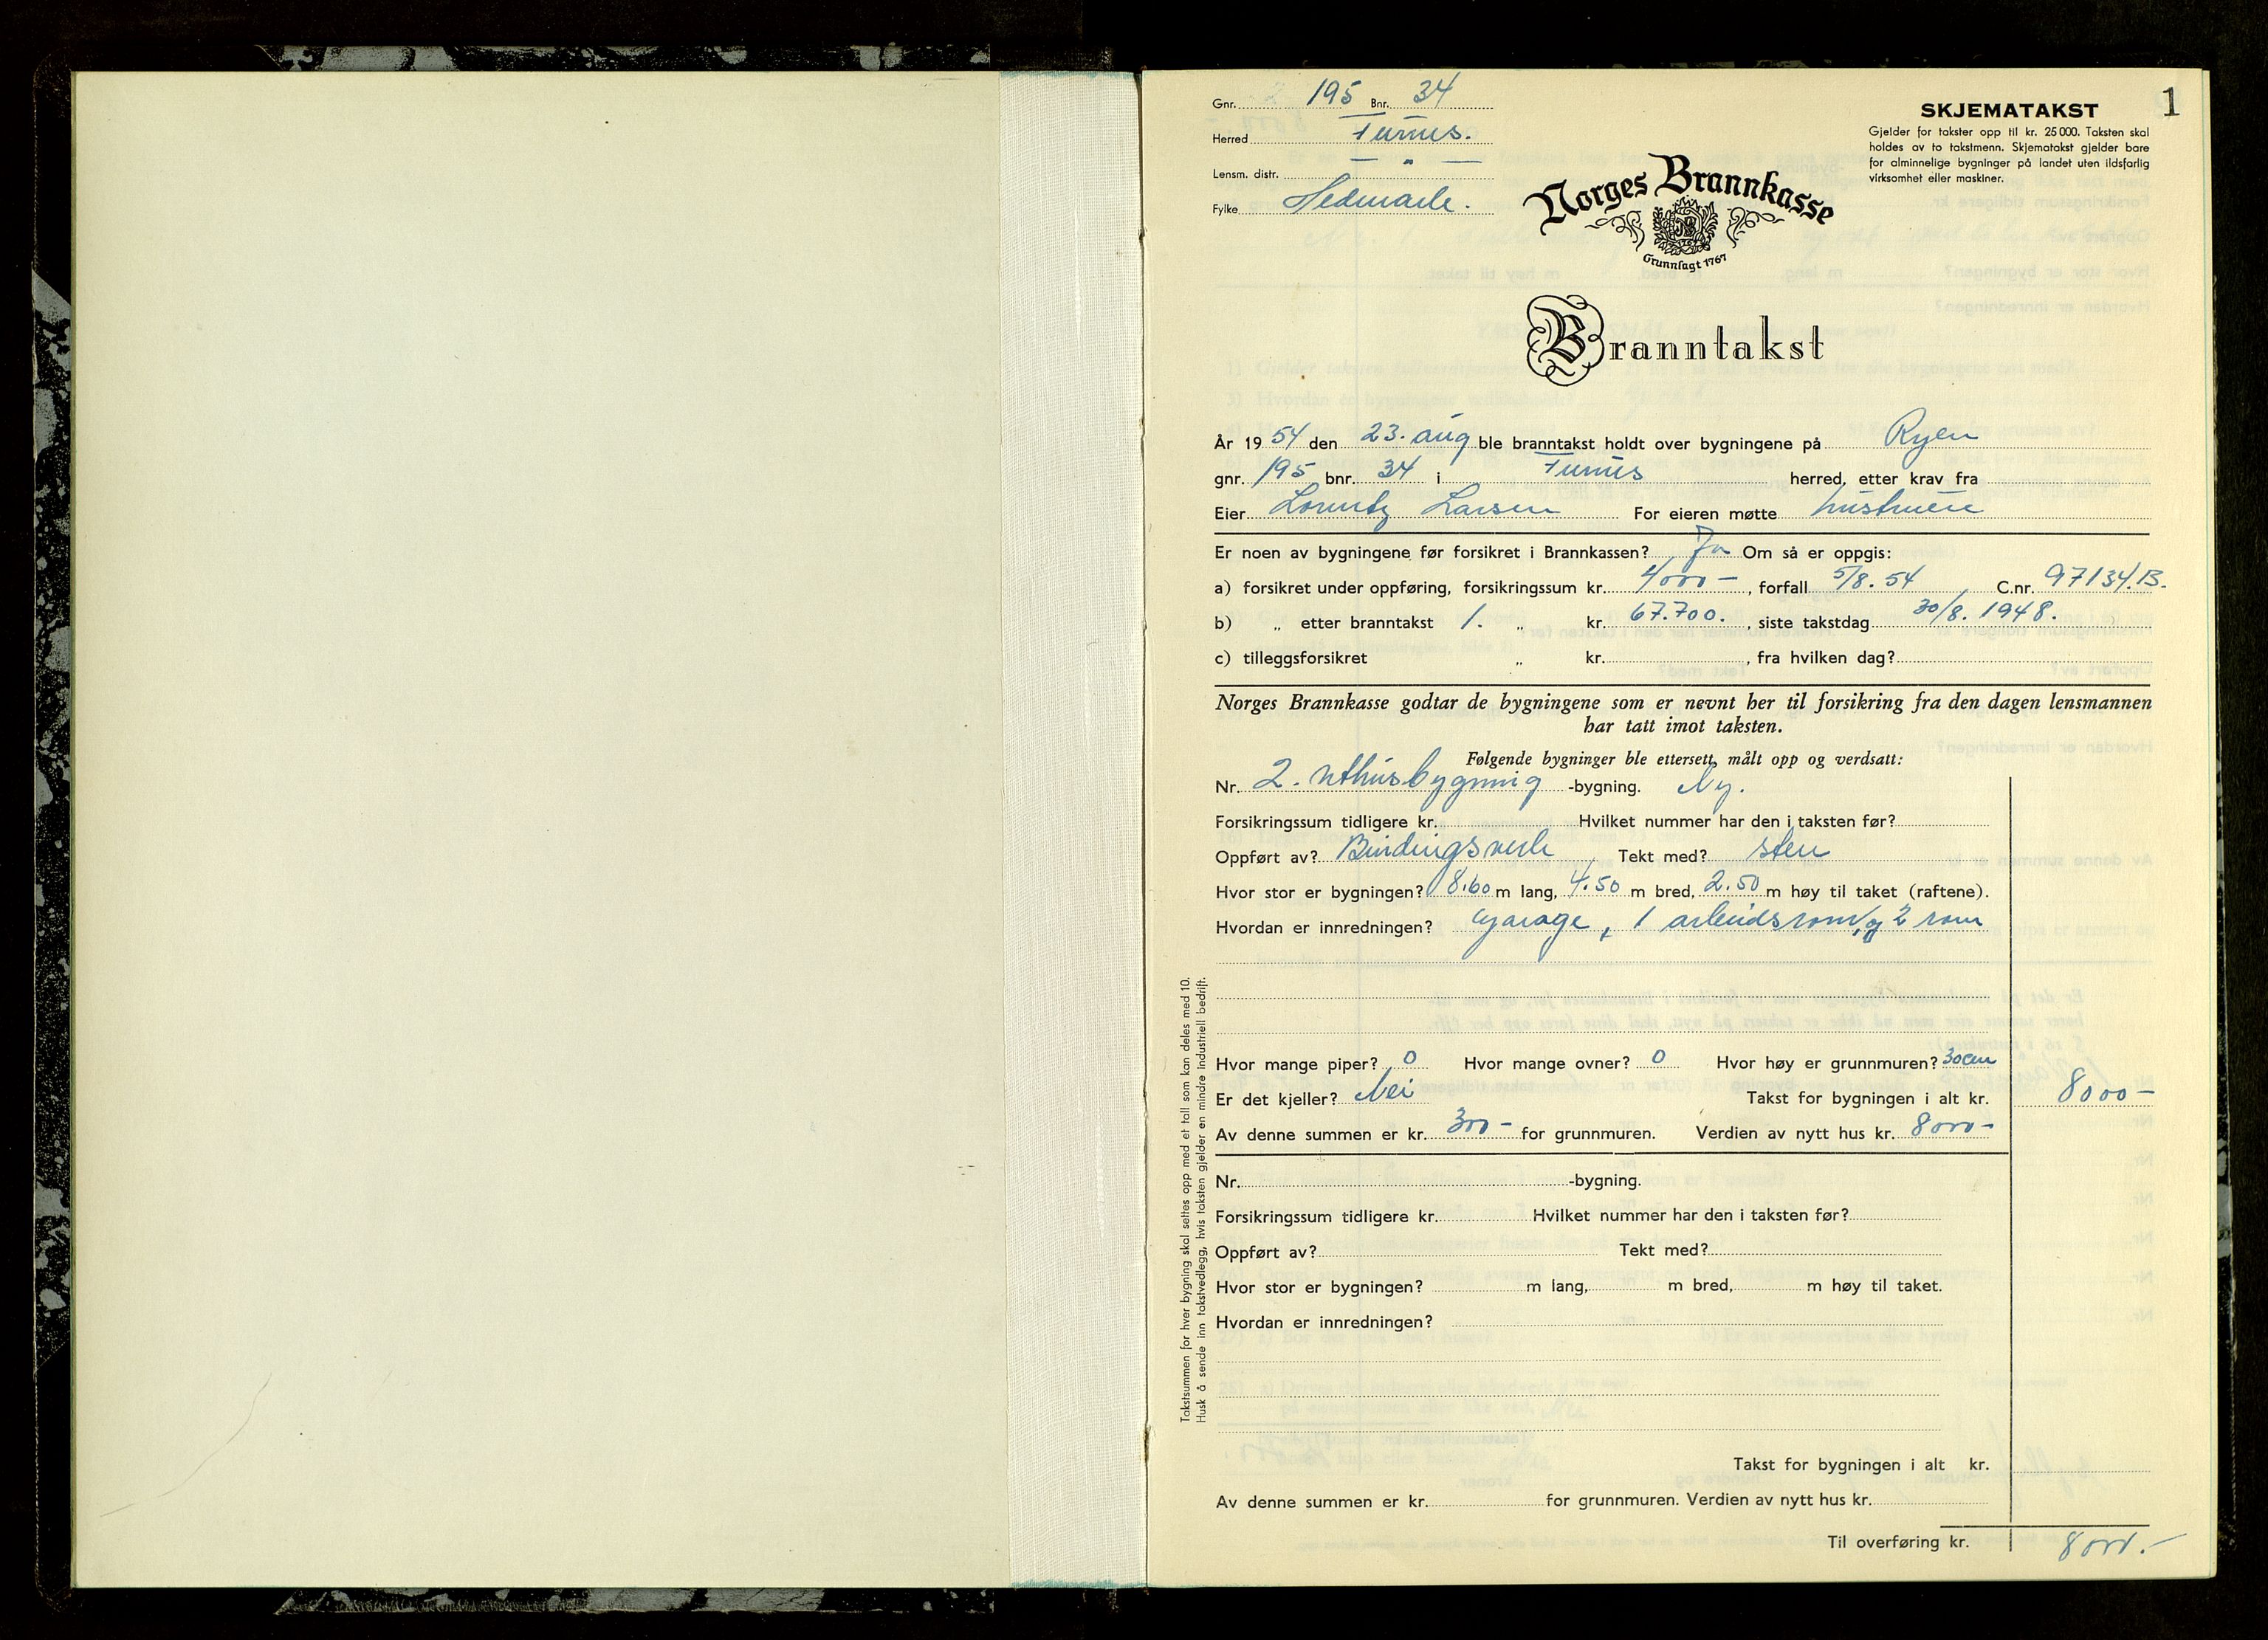 Gnr. 195 Bnr. 34
Herred Furnes.
Lensm. distr. — „ —
Fylke Hedmark.
SKJEMATAKST 1
Gjelder for takster opp til kr. 25 000. Taksten skal
holdes av to takstmenn. Skjematakst gjelder bare
for alminnelige bygninger på landet uten ildsfarlig
virksomhet eller maskiner.
Norges Brannkasse
Grunnlagt 1767
Branntakst
År 1954 den 23. aug ble branntakst holdt over bygningene på Ryen
gnr. 195 bnr. 34 i Furnes herred, etter krav fra
Eier Lorentz Larsen For eieren møtte hustruen
Er noen av bygningene før forsikret i Brannkassen? Ja Om så er oppgis:
a) forsikret under oppføring, forsikringssum kr. 4000 –, forfall 5/8. 54 C.nr. 97134.B.
b) „ etter branntakst 1. „ kr. 67.700., siste takstdag 30/8. 1948.
c) tilleggsforsikret „ kr. , fra hvilken dag?
Norges Brannkasse godtar de bygningene som er nevnt her til forsikring fra den dagen lensmannen
har tatt imot taksten.
Følgende bygninger ble ettersett, målt opp og verdsatt:
Nr. 2. Uthusbygning -bygning. Ny.
Forsikringssum tidligere kr. Hvilket nummer har den i taksten før?
Oppført av? Bindingsverk Tekt med? sten
Hvor stor er bygningen? 8.60 m lang, 4.50 m bred, 2.50 m høy til taket (raftene).
Hvordan er innredningen? Garage, 1 arbeidsrom, og 2 rom
Hvor mange piper? 0 Hvor mange ovner? 0 Hvor høy er grunnmuren? 30cm
Er det kjeller? Nei Takst for bygningen i alt kr. 8000 –
Av denne summen er kr. 300 – for grunnmuren. Verdien av nytt hus kr. 8000 –
Nr. -bygning.
Forsikringssum tidligere kr. Hvilket nummer har den i taksten før?
Oppført av? Tekt med?
Hvor stor er bygningen? m lang, m bred, m høy til taket.
Hvordan er innredningen?
Takst for bygningen i alt kr.
Av denne summen er kr. for grunnmuren. Verdien av nytt hus kr.
Til overføring kr. 8000.–
Takstsummen for hver bygning skal settes opp med et tall som kan deles med 10.
Husk å sende inn takstvedlegg, hvis taksten gjelder en mindre industriell bedrift.